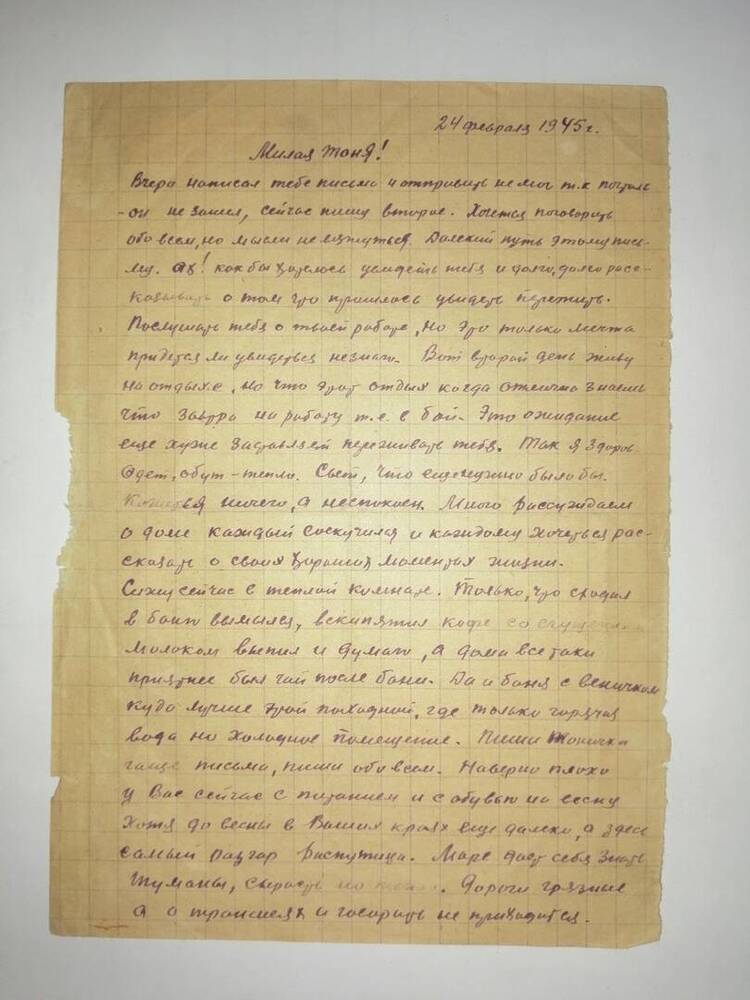 24 февраля 1945г.
Милая Тоня!
Вчера написал тебе письмо и отправить не мог т.к почталь-
-он не зашел, сейчас пишу второе. Хочется поговорить
обо всем, но мысли не вяжуться. Далекий путь этому пись-
му. Ах! как бы хотелось увидеть тебя и долго, долго расс-
казывать о том что пришлось увидеть пережить.
Послушать тебя о твоей работе, но это только мечта
придется ли увидеться незнаю. Вот второй день живу
на отдыхе, но что этот отдых когда отлично знаешь
что завтра на работу т.е. в бой. Это ожидание
еще хуже заставляет переживать тебя. Так я здоров
Одет, обут - тепло. Сыт, что еще нужно было бы.
Кажется ничего, а неспокоен. Много рассуждаем
о доме каждый соскучился и каждому хочеться рас-
сказать о своих хороших моментах жизни.
Сижу сейчас в теплой комнате. Только, что сходил
в баню вымылся, вскипятил кофе со сгущен
молоком выпил и думаю, а дома все таки
приятнее был чай после бани. Да и баня с веничком
куда лучше этой походной, где только горячая
вода но холодное помещение. Пиши Тоничка
чаще письма, пиши обо всем. Наверно плохо
у Вас сейчас с питанием и с обувью на весну
Хотя до весны в Ваших краях еще далеко, а здесь
самый разгар распутица. Море дает себя знать
Туманы, сырость но Дороги грязные
а о трансшеях и говорить не приходится.